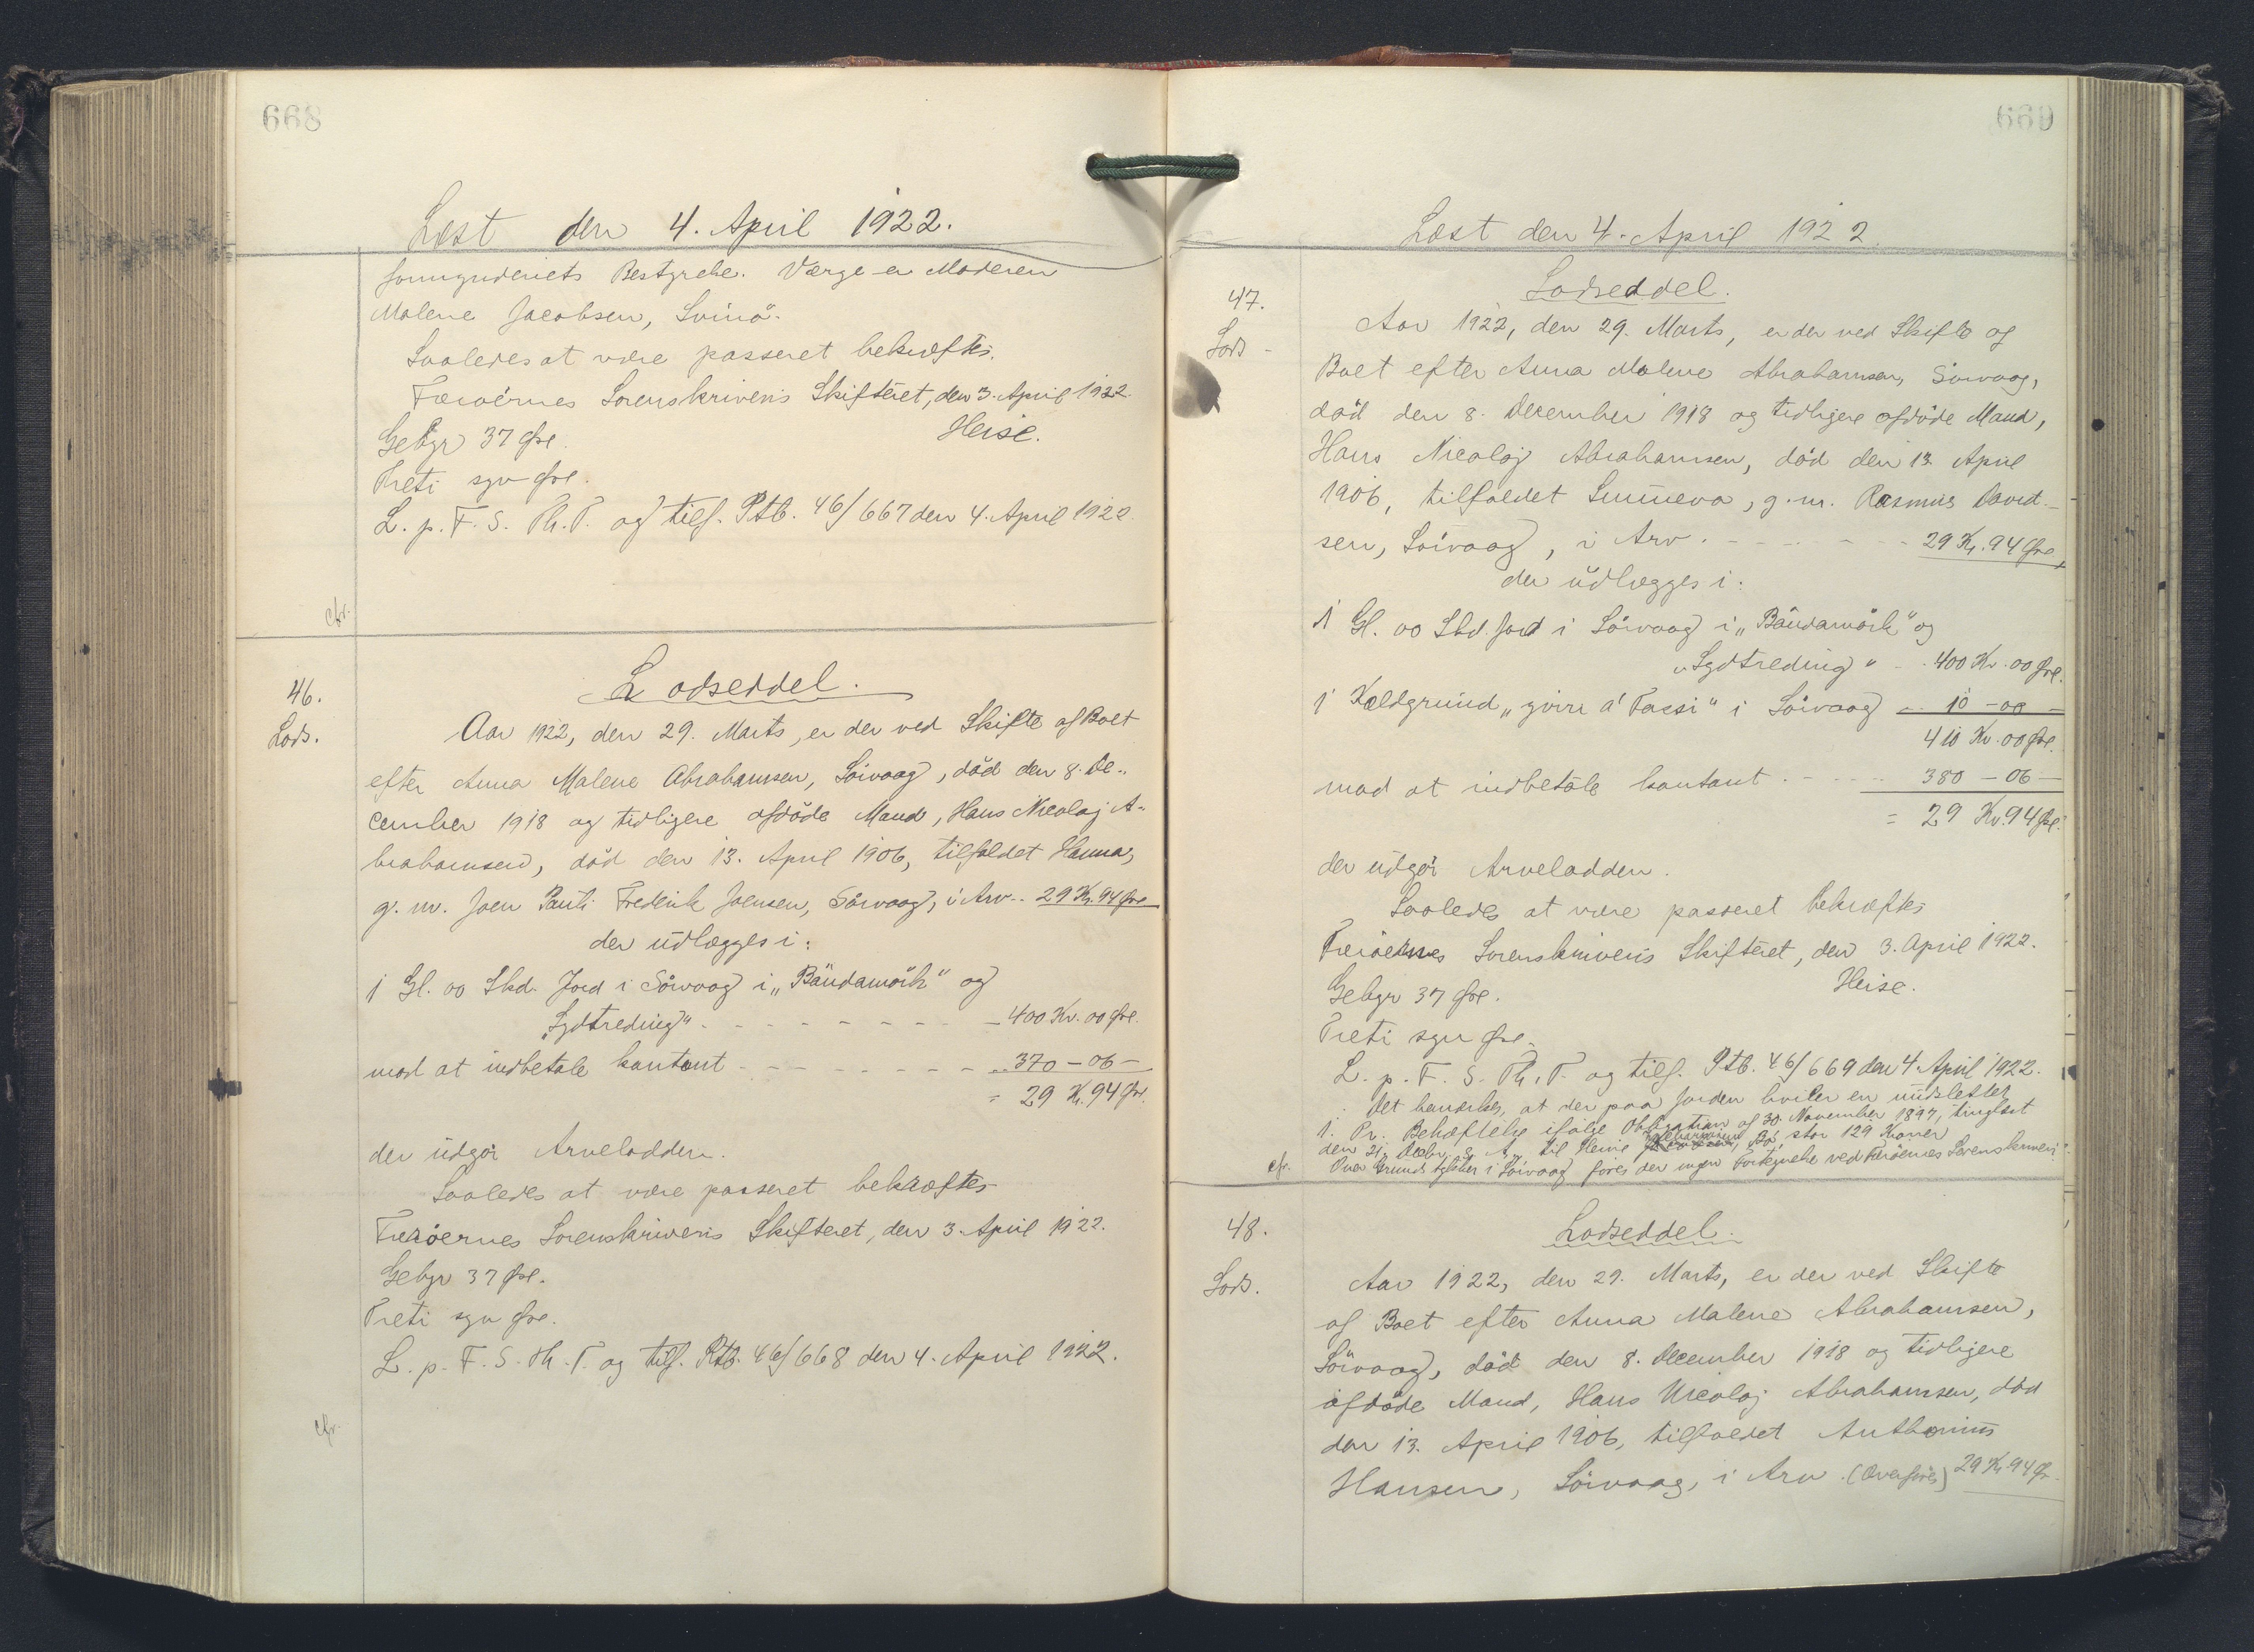 668
Læst den 4. April 1922.
Formynderiets Bestyrelse. Værge er Moderen
Malene Jacobsen, Svinö.
Saaledes at være passeret bekræftes.
Færöernes Sorenskriveris Skifteret, den 3. April 1922.
Gebyr 37 Øre.
Heise.
Treti syv Øre.
L. p. F. S. Th. T. og tilf. Ptb. 46/667 den 4. April 1922
cfr.
46.
Lods.
Lodseddel.
Aar 1922, den 29. Marts, er der ved Skifte af Boet
efter Anna Malene Abrahamsen, Sörvaag, död den 8. De-
cember 1918 og tidligere afdöde Mand, Hans Nicolaj A-
brahamsen, död den 13. April 1906, tilfaldet Hanna,
g. m. Joen Pauli Frederik Joensen, Sörvaag, i Arv.. 29 Kr. 94 Øre
der udlægges i:
1 Gl. 00 Skd. Jord i Sörvaag i „Böudamörk" og
„Sydtreding" - - - - - - - - 400 Kr. 00 Øre.
mod at indbetale kontant - - - - - - - - 370 - 06 -
= 29 Kr. 94 Øre.
der udgör Arvelodden.
Saaledes at være passeret bekræftes
Færöernes Sorenskriveris Skifteret, den 3. April 1922.
Gebyr 37 Øre.
Treti syv Øre.
L. p. F. S. Th. T. og tilf. Ptb. 46/668 den 4. April 1922.
cfr.
669
Læst den 4. April 1922.
47.
Lods -
Lodseddel.
Aar 1922, den 29. Marts, er der ved Skifte af
Boet efter Anna Malene Abrahamsen, Sörvaag,
död den 8. December 1918 og tidligere afdöde Mand,
Hans Nicolaj Abrahamsen, död den 13. April
1906, tilfaldet Sunneva, g. m. Rasmus David-
sen, Sörvaag, i Arv. - - - - - - 29 Kr. 94 Øre,
der udlægges i:
1 Gl. 00 Skd. Jord i Sörvaag i „Böudamörk" og
„Sydtreding" - - 400 Kr. 00 Øre.
1 Kaldgrund „yvirr á Fassi" i Sörvaag - - 10 - 00 -
410 Kr. 00 Øre.
mod at indbetale kontant - - - - - 380 - 06 -
= 29 Kr. 94 Øre.
der udgör Arvelodden.
Saaledes at være passeret bekræftes
Færöernes Sorenskriveris Skifteret, den 3. April 1922.
Gebyr 37 Øre.
Heise.
Treti syv Øre.
L. p. F. S. Th. T. og tilf. Ptb. 46/669 den 4. April 1922.
Det bemærkes, at der paa Jorden hviler en uudslettet
1. Pr. Behæftelse ifölge Obligation af 30. November 1897, tinglæst
den 21. Decbr. s. A., til Heine Bö, stor 129 Kroner
Over Grundstykker i Sörvaag föres der ingen Fortegnelse ved Færöernes Sorenskriveri.
cfr.
48.
Lods.
Lodseddel.
Aar 1922, den 29. Marts, er der ved Skifte
af Boet efter Anna Malene Abrahamsen,
Sörvaag, död den 8. December 1918 og tidligere
afdöde Mand, Hans Nicolaj Abrahamsen, död
den 13. April 1906, tilfaldet Anthonius
Hansen, Sörvaag, i Arv. (Overføres) 29 Kr. 94 Ør.